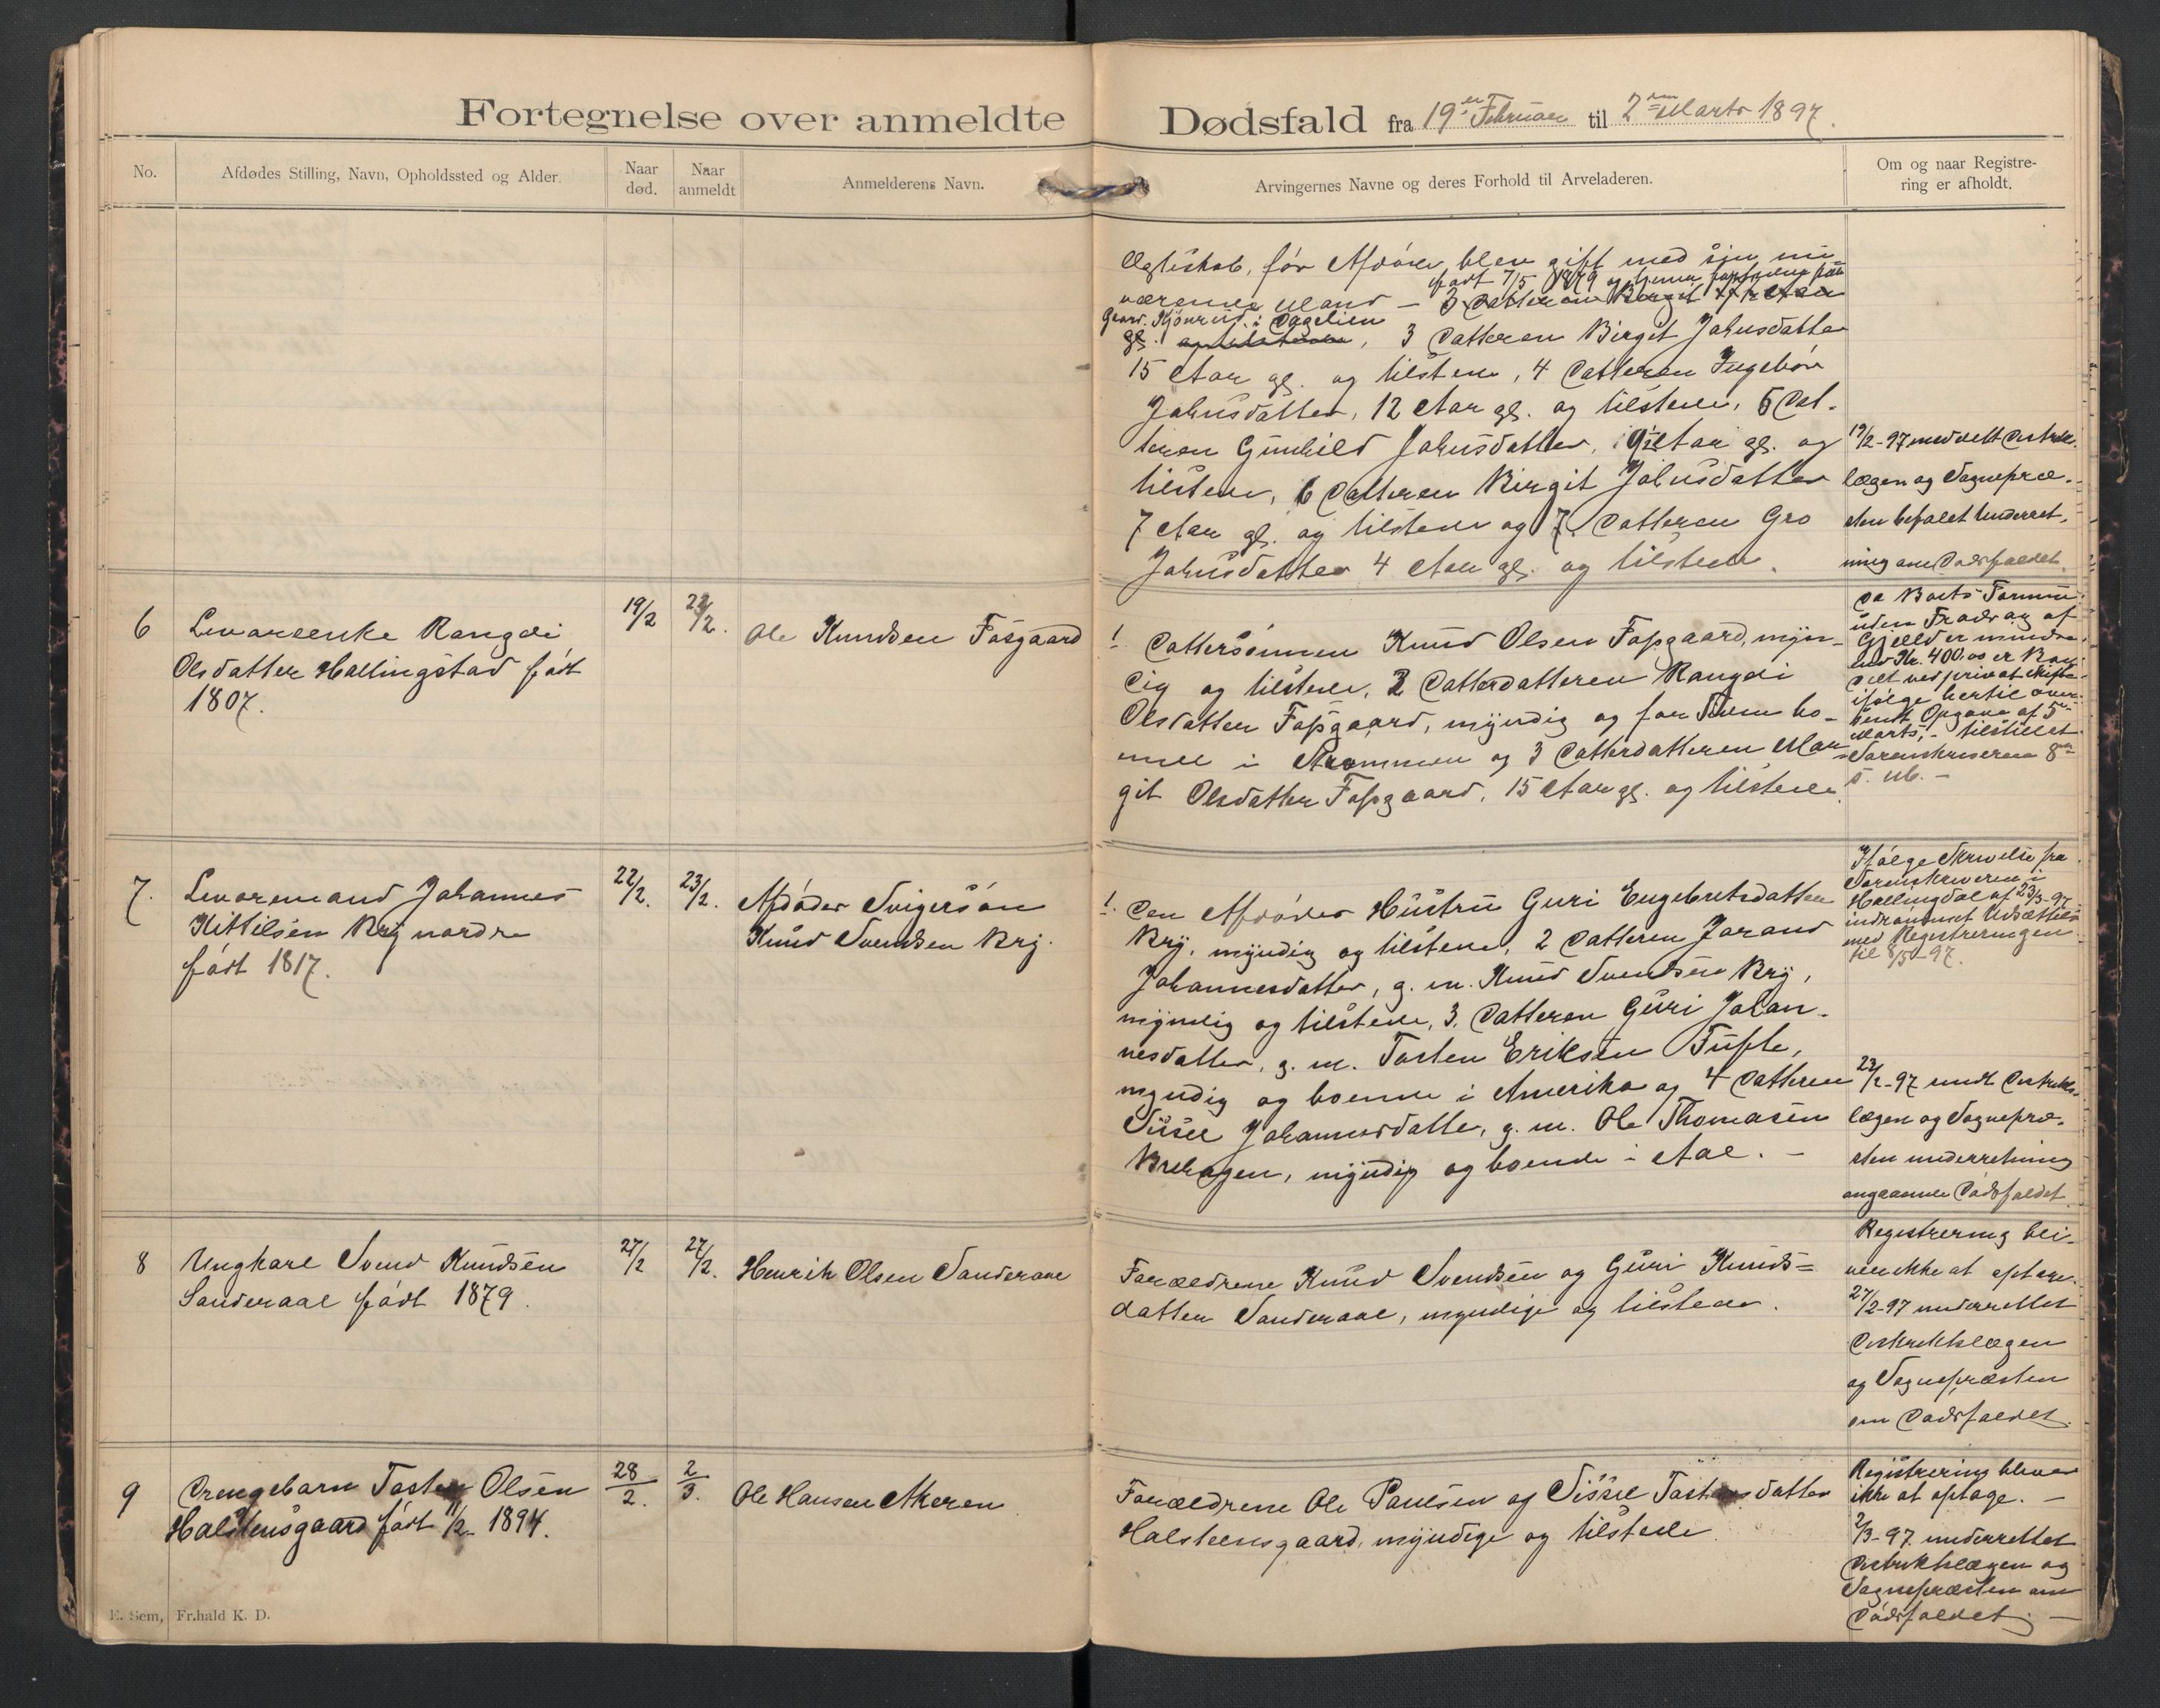 Fortegnelse over anmeldte Dødsfald fra 19de Februar til 2den Marts 1897.
No.
Afdødes Stilling, Navn, Opholdssted og Alder.
Naar død.
Naar anmeldt
Anmelderens Navn.
Arvingernes Navne og deres Forhold til Arveladeren.
Om og naar Registre-
ring er afholdt.
Ægteskab, før Afdøde blev gift med sin nu-
født 7/5 1879 og
værende Mand – 3 Datteren Birgit
Gaard. i Dagalien
gl. , 3 Datteren Birgit Johnsdatter
15 Aar gl. og tilstede, 4 Datteren Ingebør
Johnsdatter, 12 Aar gl. og tilstede, 5 Dat-
teren Gunhild Johnsdatter, 9 Aar gl. og
tilstede, 6 Datteren Birgit Johnsdatter
7 Aar gl. og tilstede og 7. Datteren Gro
Johnsdatter 4 Aar gl. og tilstede.
19/2-97 meddelt Distrikts-
lægen og Sognepræ-
sten befalet Underret-
ning om Dødsfaldet.
6
Levarenke Rangdi
Olsdatter Hallingstad født
1807.
19/2
22/2.
Ole Knudsen Fosgaard
1. Dattersønnen Knud Olsen Fosgaard, myn-
dig og tilstede, 2 Datterdatteren Rangdi
Olsdatter Fosgaard, myndig og for Tiden bo-
ende i Drammen og 3 Datterdatteren Mar-
git Olsdatter Fosgaard, 15 Aar gl. og tilstede.
Da Boets Formue
uden Fradrag af
Gjeld er mindre
end Kr. 400,00 er Bo-
det ved privat Skifte
ifølge hertil over-
sendt Opgave af 5te
Marts, – tilstillet
Sorenskriveren 8de
s. M. –
7.
Levoremand Johannes
Kittilsen Bry nordre
født 1817.
22/2.
23/2.
Afdødes Svigersøn
Knud Svendsen Bry.
1. Den Afdødes Hustru Guri Engebretsdatter
Bry, myndig og tilstede, 2 Datteren Jorand
Johannesdatter, g. m. Knud Svendsen Bry,
myndig og tilstede, 3. Datteren Guri Johan-
nesdatter, g. m. Tosten Eriksen Tufte,
myndig og boende i Amerika og 4 Datteren
Sissel Johannesdatte, g. m. Ole Thomasen
Brehagen, myndig og boende i Aal. –
Ifølge Skrivelse fra
Sorenskriveren i
Hallingdal af 23/3-97
indrømmet Udsættelse
med Registreringen
til 8/5-97.
23/2-97 medt Distrikts-
lægen og Sognepræ-
sten underretning
angaaende Dødsfaldet
8
Ungkarl Svend Knudsen
Sanderaal født 1879.
27/2
27/2.
Henrik Olsen Sanderaal
Forældrene Knud Svendsen og Guri Knuds=
datter Sanderaal, myndige og tilstede.
Registrering bli-
ver ikke at optage.
27/2-97 underrettet
Distriktslægen
og Sognepræsten
om Dødsfaldet.
9
Drengebarn Tosten Olsen
Halstensgaard født 11/2 1894.
28/2.
2/3.
Ole Hansen Akeren
Forældrene Ole Paulsen og Sissel Tostensdatter
Halsteensgaard, myndige og tilstede
Registrering bliver
ikke at optage. –
2/3-97. underrettet
Distriktslægen og
Sognepræsten om
Dødsfaldet. –
E. Sem, Fr.hald K. D.